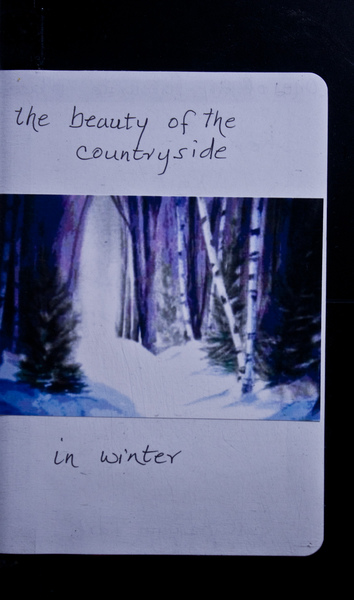 the beauty of the
countryside
in winter